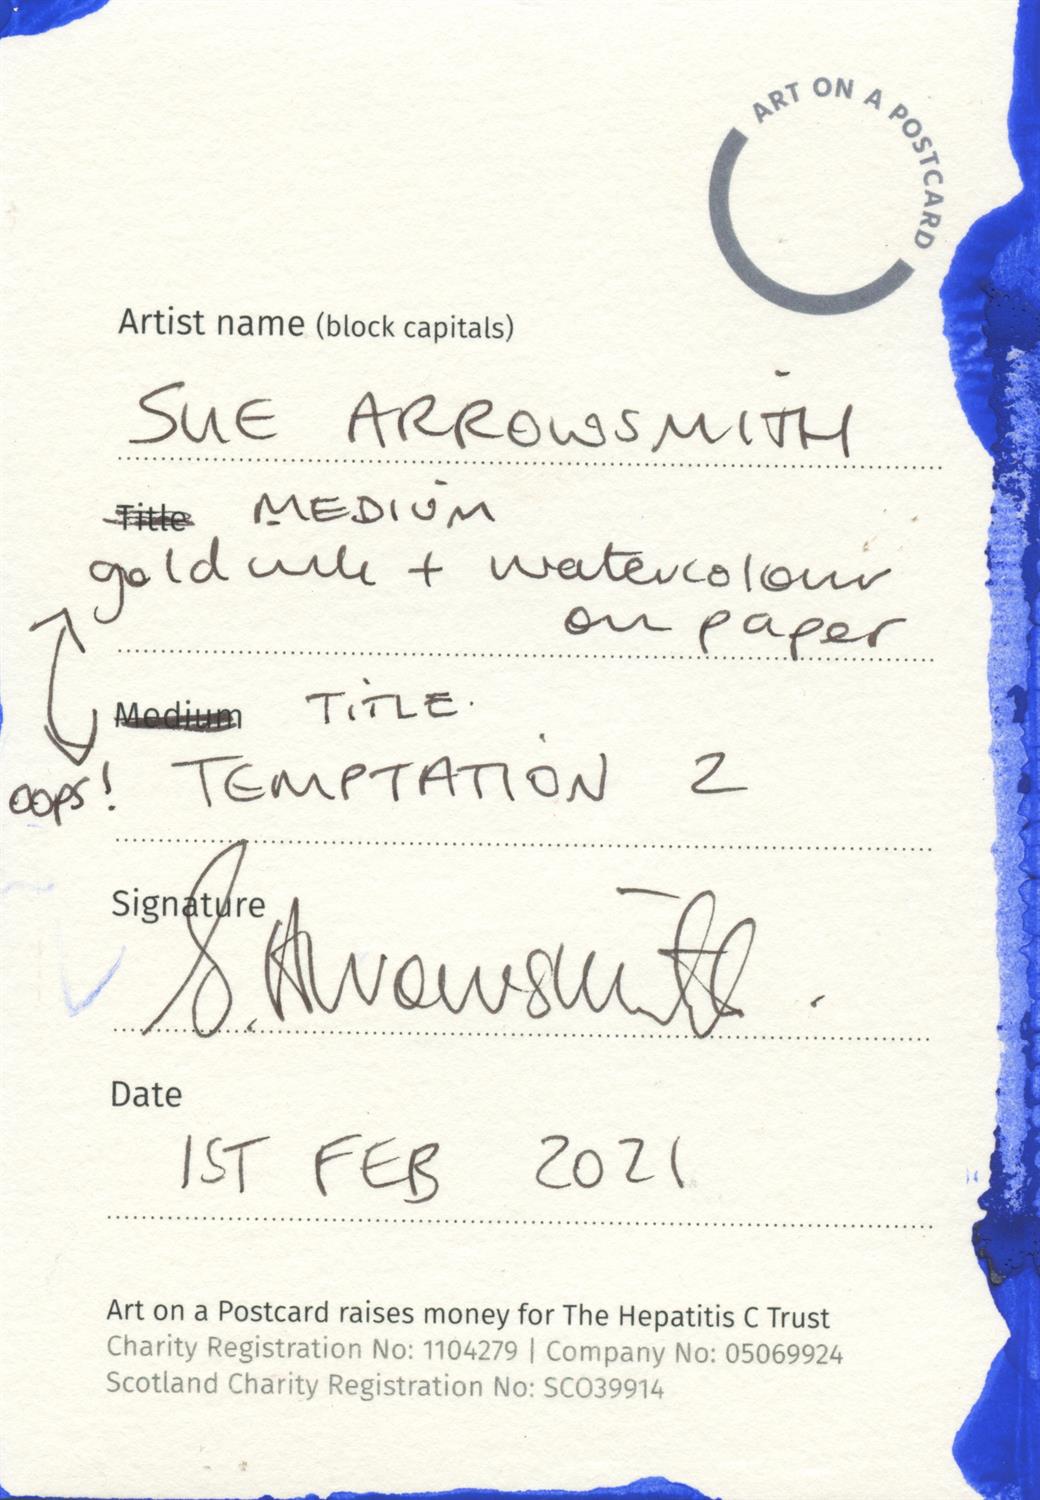 ART ON A POSTCARD
Artist name (block capitals)
SUE ARROWSMITH
Title MEDIUM
gold ink + watercolour
on paper
Medium TITLE.
oops! TEMPTATION 2
Signature
S. Arrowsmith.
Date
1ST FEB 2021
Art on a Postcard raises money for The Hepatitis C Trust
Charity Registration No: 1104279 | Company No: 05069924
Scotland Charity Registration No: SCO39914